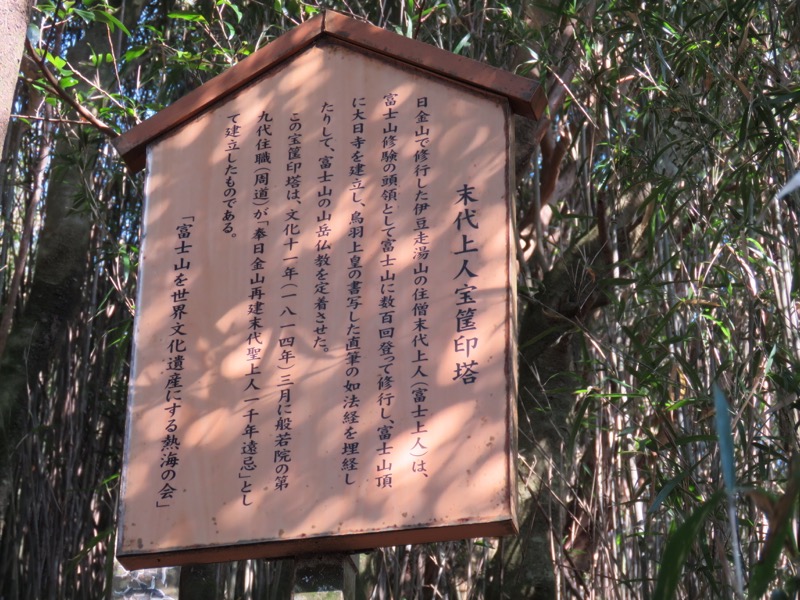 末代上人宝筐印塔
日金山で修行した伊豆走湯山の住僧末代上人(富士上人)は、
富士山修験の頭領として富士山に数百回登って修行し、富士山頂
に大日寺を建立し、鳥羽上皇の書写した直筆の如法経を埋経し
たりして、富士山の山岳仏教を定着させた。
この宝筐印塔は、文化十一年(一八一四年)三月に般若院の第
九代住職(周道)が「奉日金山再建末代聖上人一千年遠忌」とし
て建立したものである。
「富士山を世界文化遺産にする熱海の会」